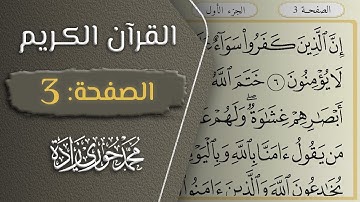 القرآن الكريم
الصفحة: 3
الصفحة 3
الجزء الأول
إِنَّ ٱلَّذِينَ كَفَرُواْ سَوَآءٌ
لَا يُؤْمِنُونَ ٦ خَتَمَ ٱللَّهُ
أَبْصَٰرِهِمْ غِشَٰوَةٌ وَلَهُمْ
مَن يَقُولُ ءَامَنَّا بِٱللَّهِ وَبِٱلْيَوْمِ
يُخَٰدِعُونَ ٱللَّهَ وَٱلَّذِينَ ءَامَنُوا